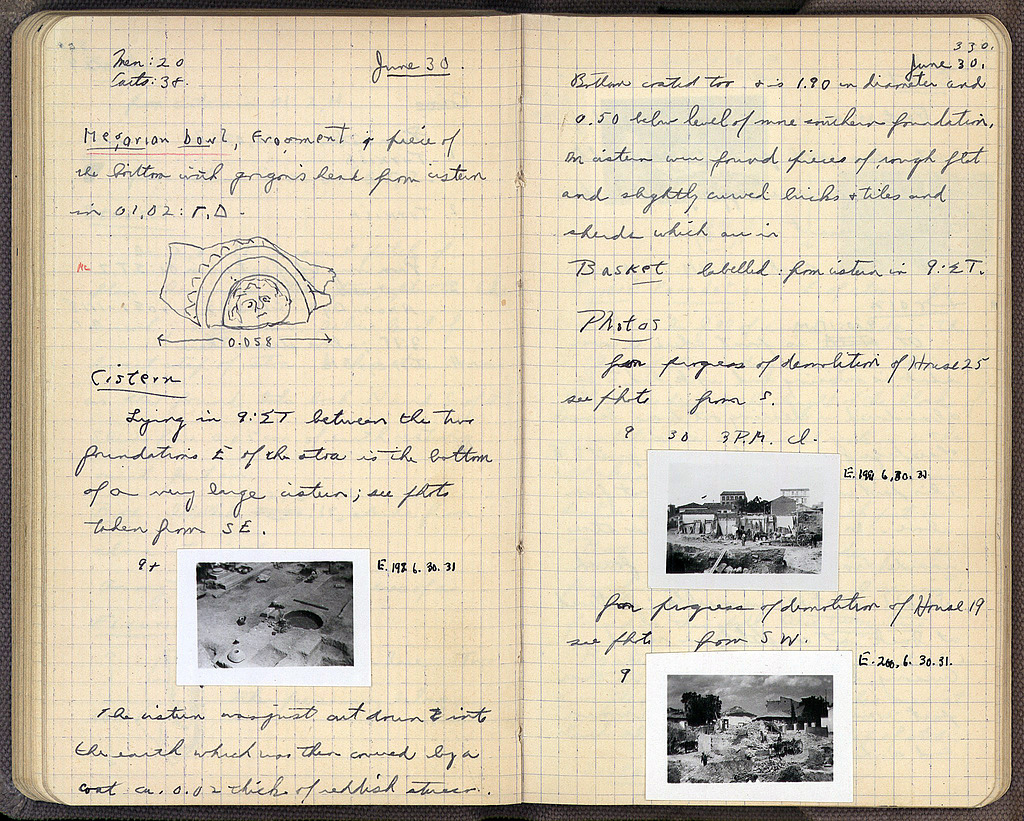 Men: 20
Carts: 38.
June 30.
Megarian bowl, Fragment & piece of
the bottom with gorgon's head from cistern
in 01,02: Γ,Δ.
0.058
Cistern
Lying in 9:ΣΤ between the two
foundations E of the stoa is the bottom
of a very large cistern; see photo
taken from SE.
9+
E. 6. 30. 31
The cistern was just cut down into
the earth which was then covered by a
coat ca. 0.02 thick of reddish stucco.
330.
June 30.
Bottom coated too & is 1.90 in diameter and
0.50 below level of more southern foundation.
In cistern were found pieces of rough flat
and slightly curved bricks & tiles and
sherds which are in
Basket labelled: from cistern in 9:ΣΤ.
Photos
For progress of demolition of House 25
see photo from S.
9 30 3 P.M. cl.
E. 199. 6. 30. 31
For progress of demolition of House 19
see photo from SW.
9
E. 200. 6. 30. 31.